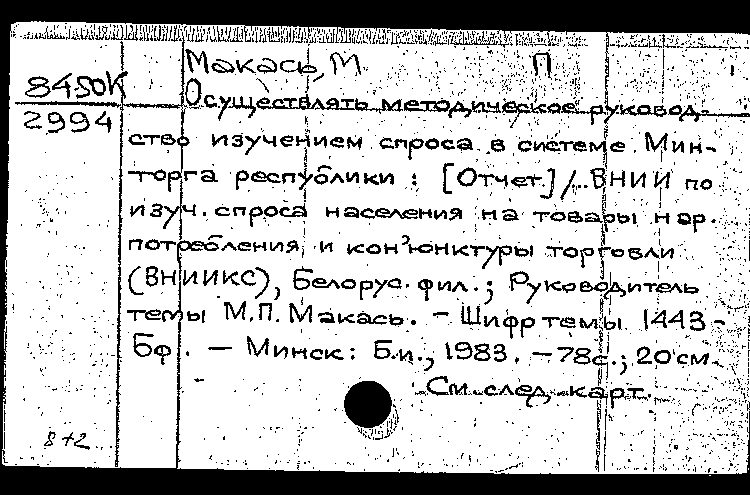 Макась, М П
8450К
2994
Осуществлять методическое руковод-
ство изучением спроса в системе Мин-
торга республики : [Отчет] / ВНИИ по
изуч. спроса населения на товары нар.
потребления и кон'юнктуры торговли
(ВНИИКС), Белорус. фил. ; Руководитель
темы М.П. Макась. – Шифр темы 1443-
Бф. – Минск : Б.и., 1983. – 78с. ; 20 см.
См. след. карт.
8+2